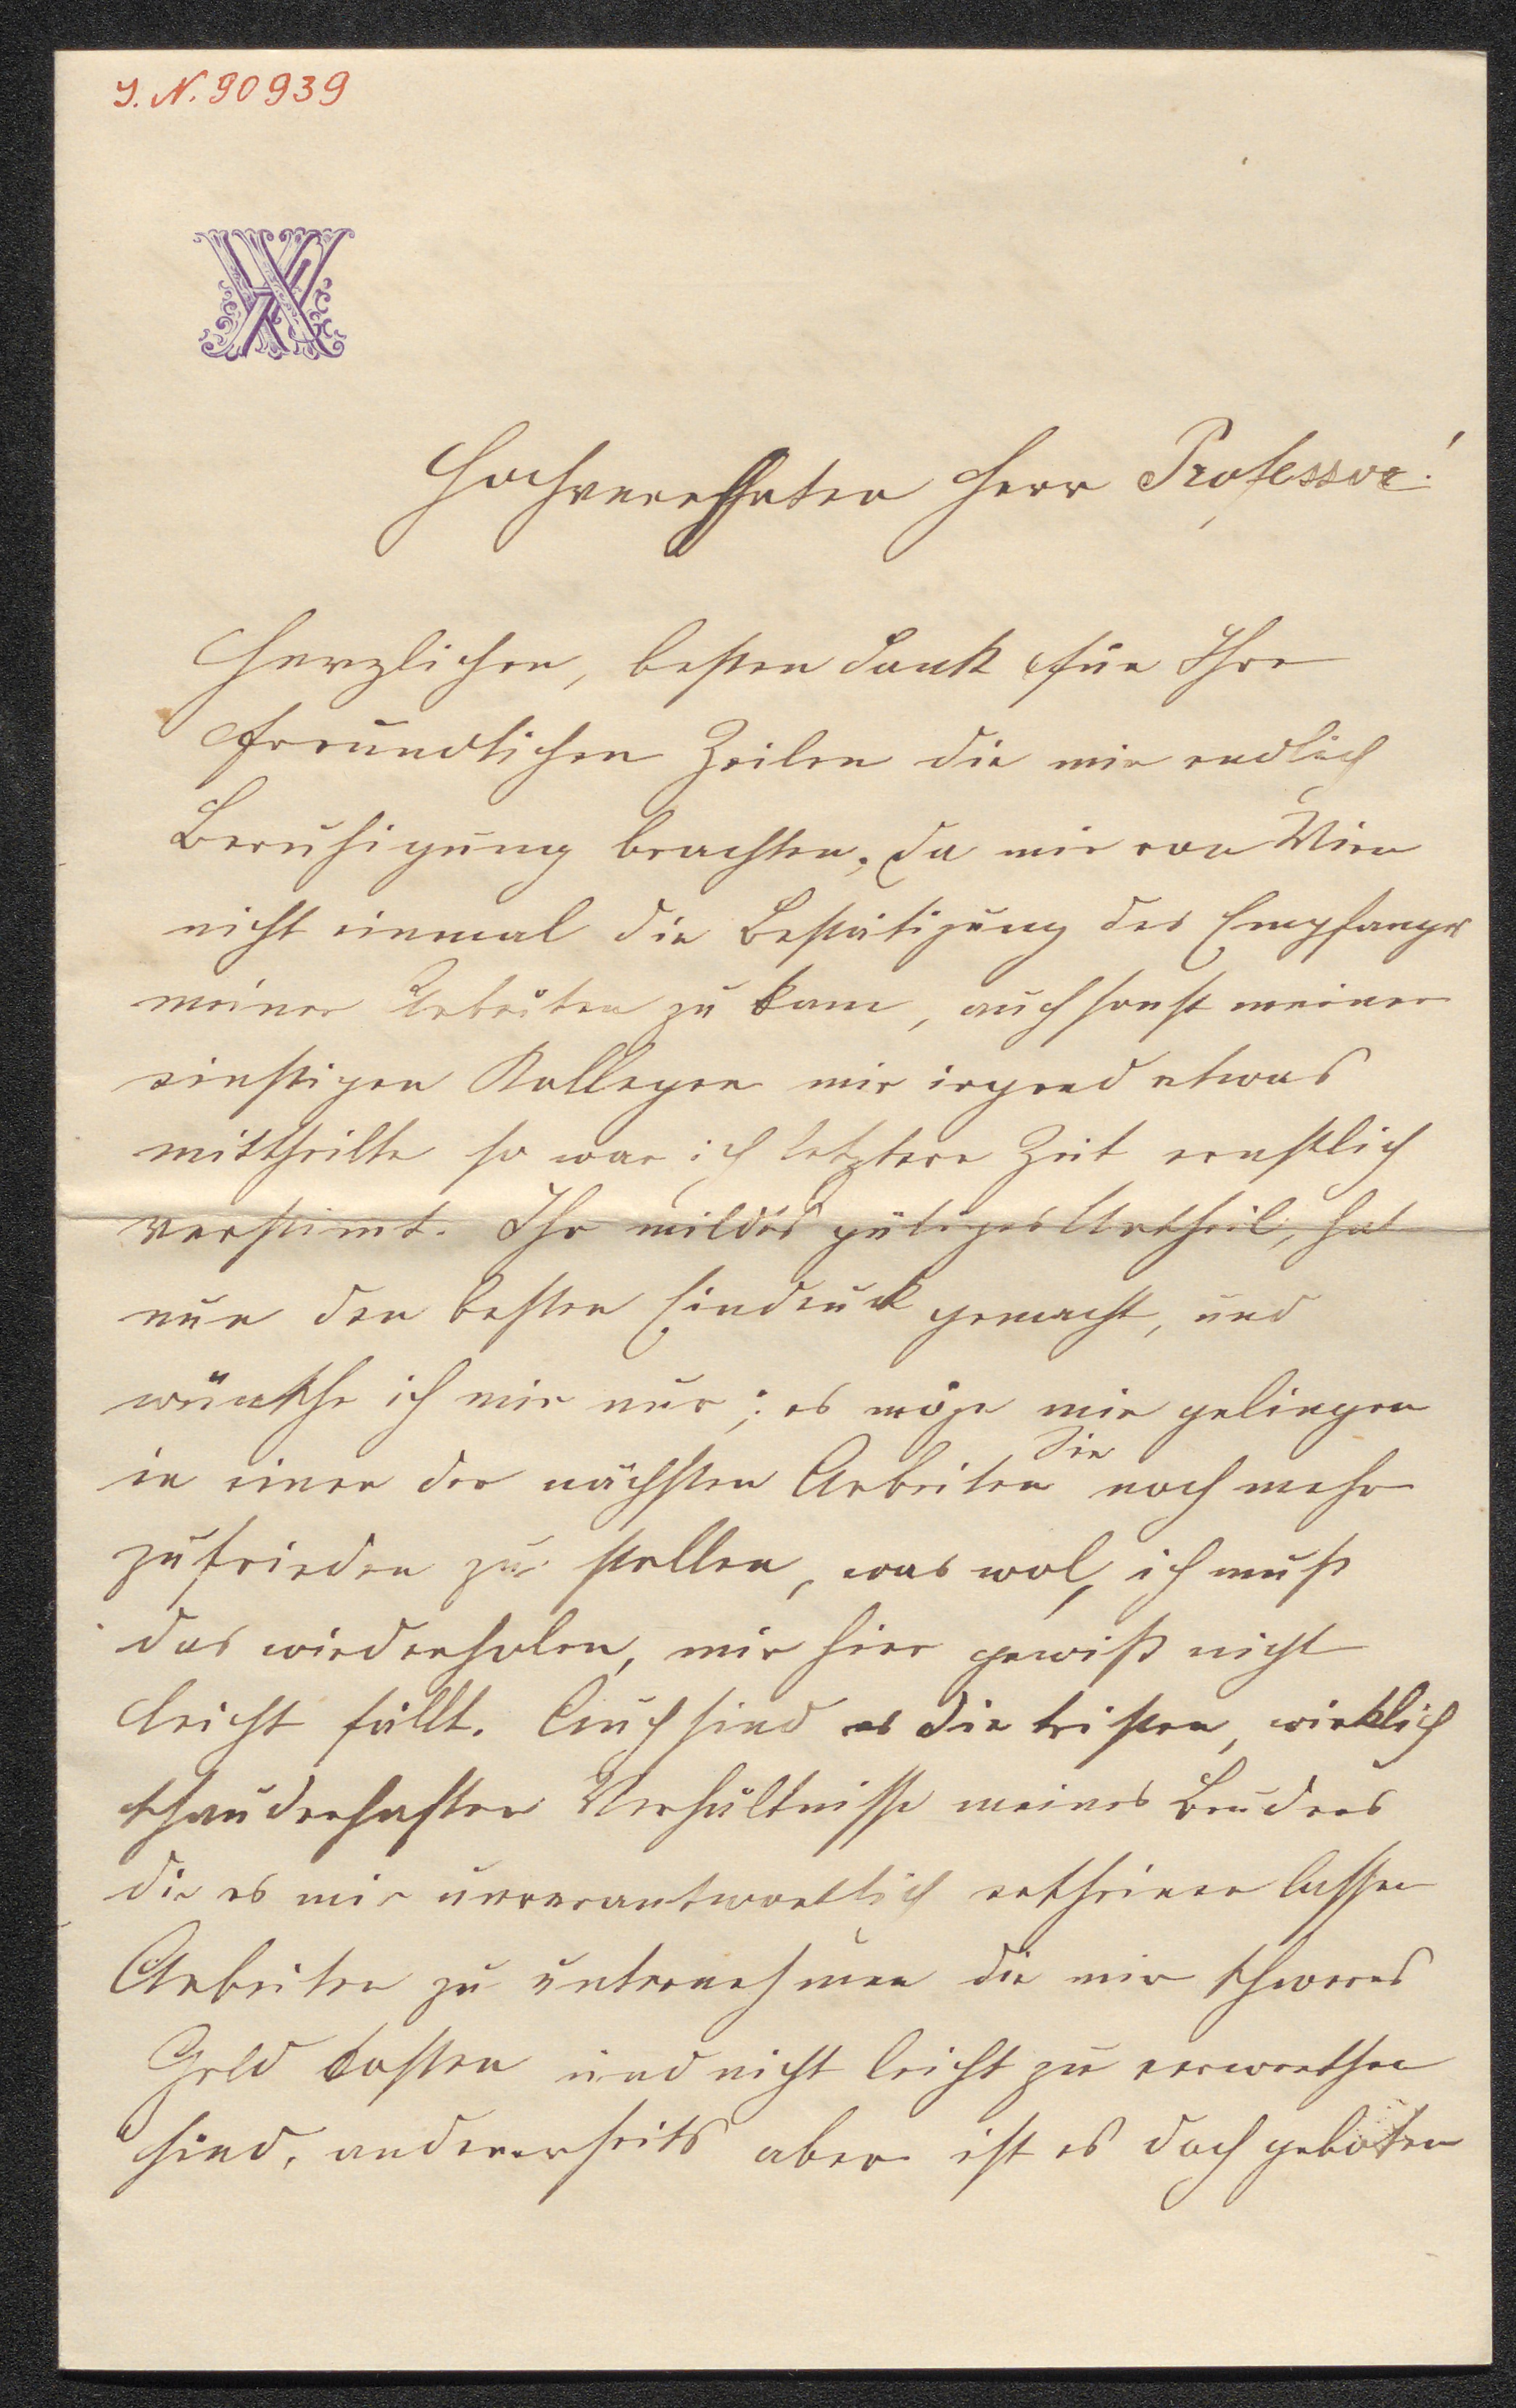 J. N. 90939
Hochverehrter Herr Professor!
Herzlichen, besten Dank für Ihre
freundlichen Zeilen die mir endlich
Beruhigung brachten. Da mir von Wien
nicht einmal die Bestätigung des Empfanges
meiner Arbeiten zu kam, auch sonst meiner
einstigen Kollegen mir irgend etwas
mittheilte so war ich letztere Zeit ernstlich
verstimt. Ihr mildes gütiges Urtheil, hat
nun den besten Eindruck gemacht, und
wünsche ich mir nur; es möge mir gelingen
in einer der nächsten Arbeiten Sie noch mehr
zufrieden zu stellen, was wol, ich muß
das wiederholen, mir hier gewiß nicht
leicht fällt. Auch sind es die tristen, wirklich
schauderhaften Verhältnisse meines Bruders
die es mir unverantwortlich erscheinen lassen
Arbeiten zu unternehmen die mir schweres
Geld kosten und nicht leicht zu verwerthen
sind, andererseits aber ist es doch geboten